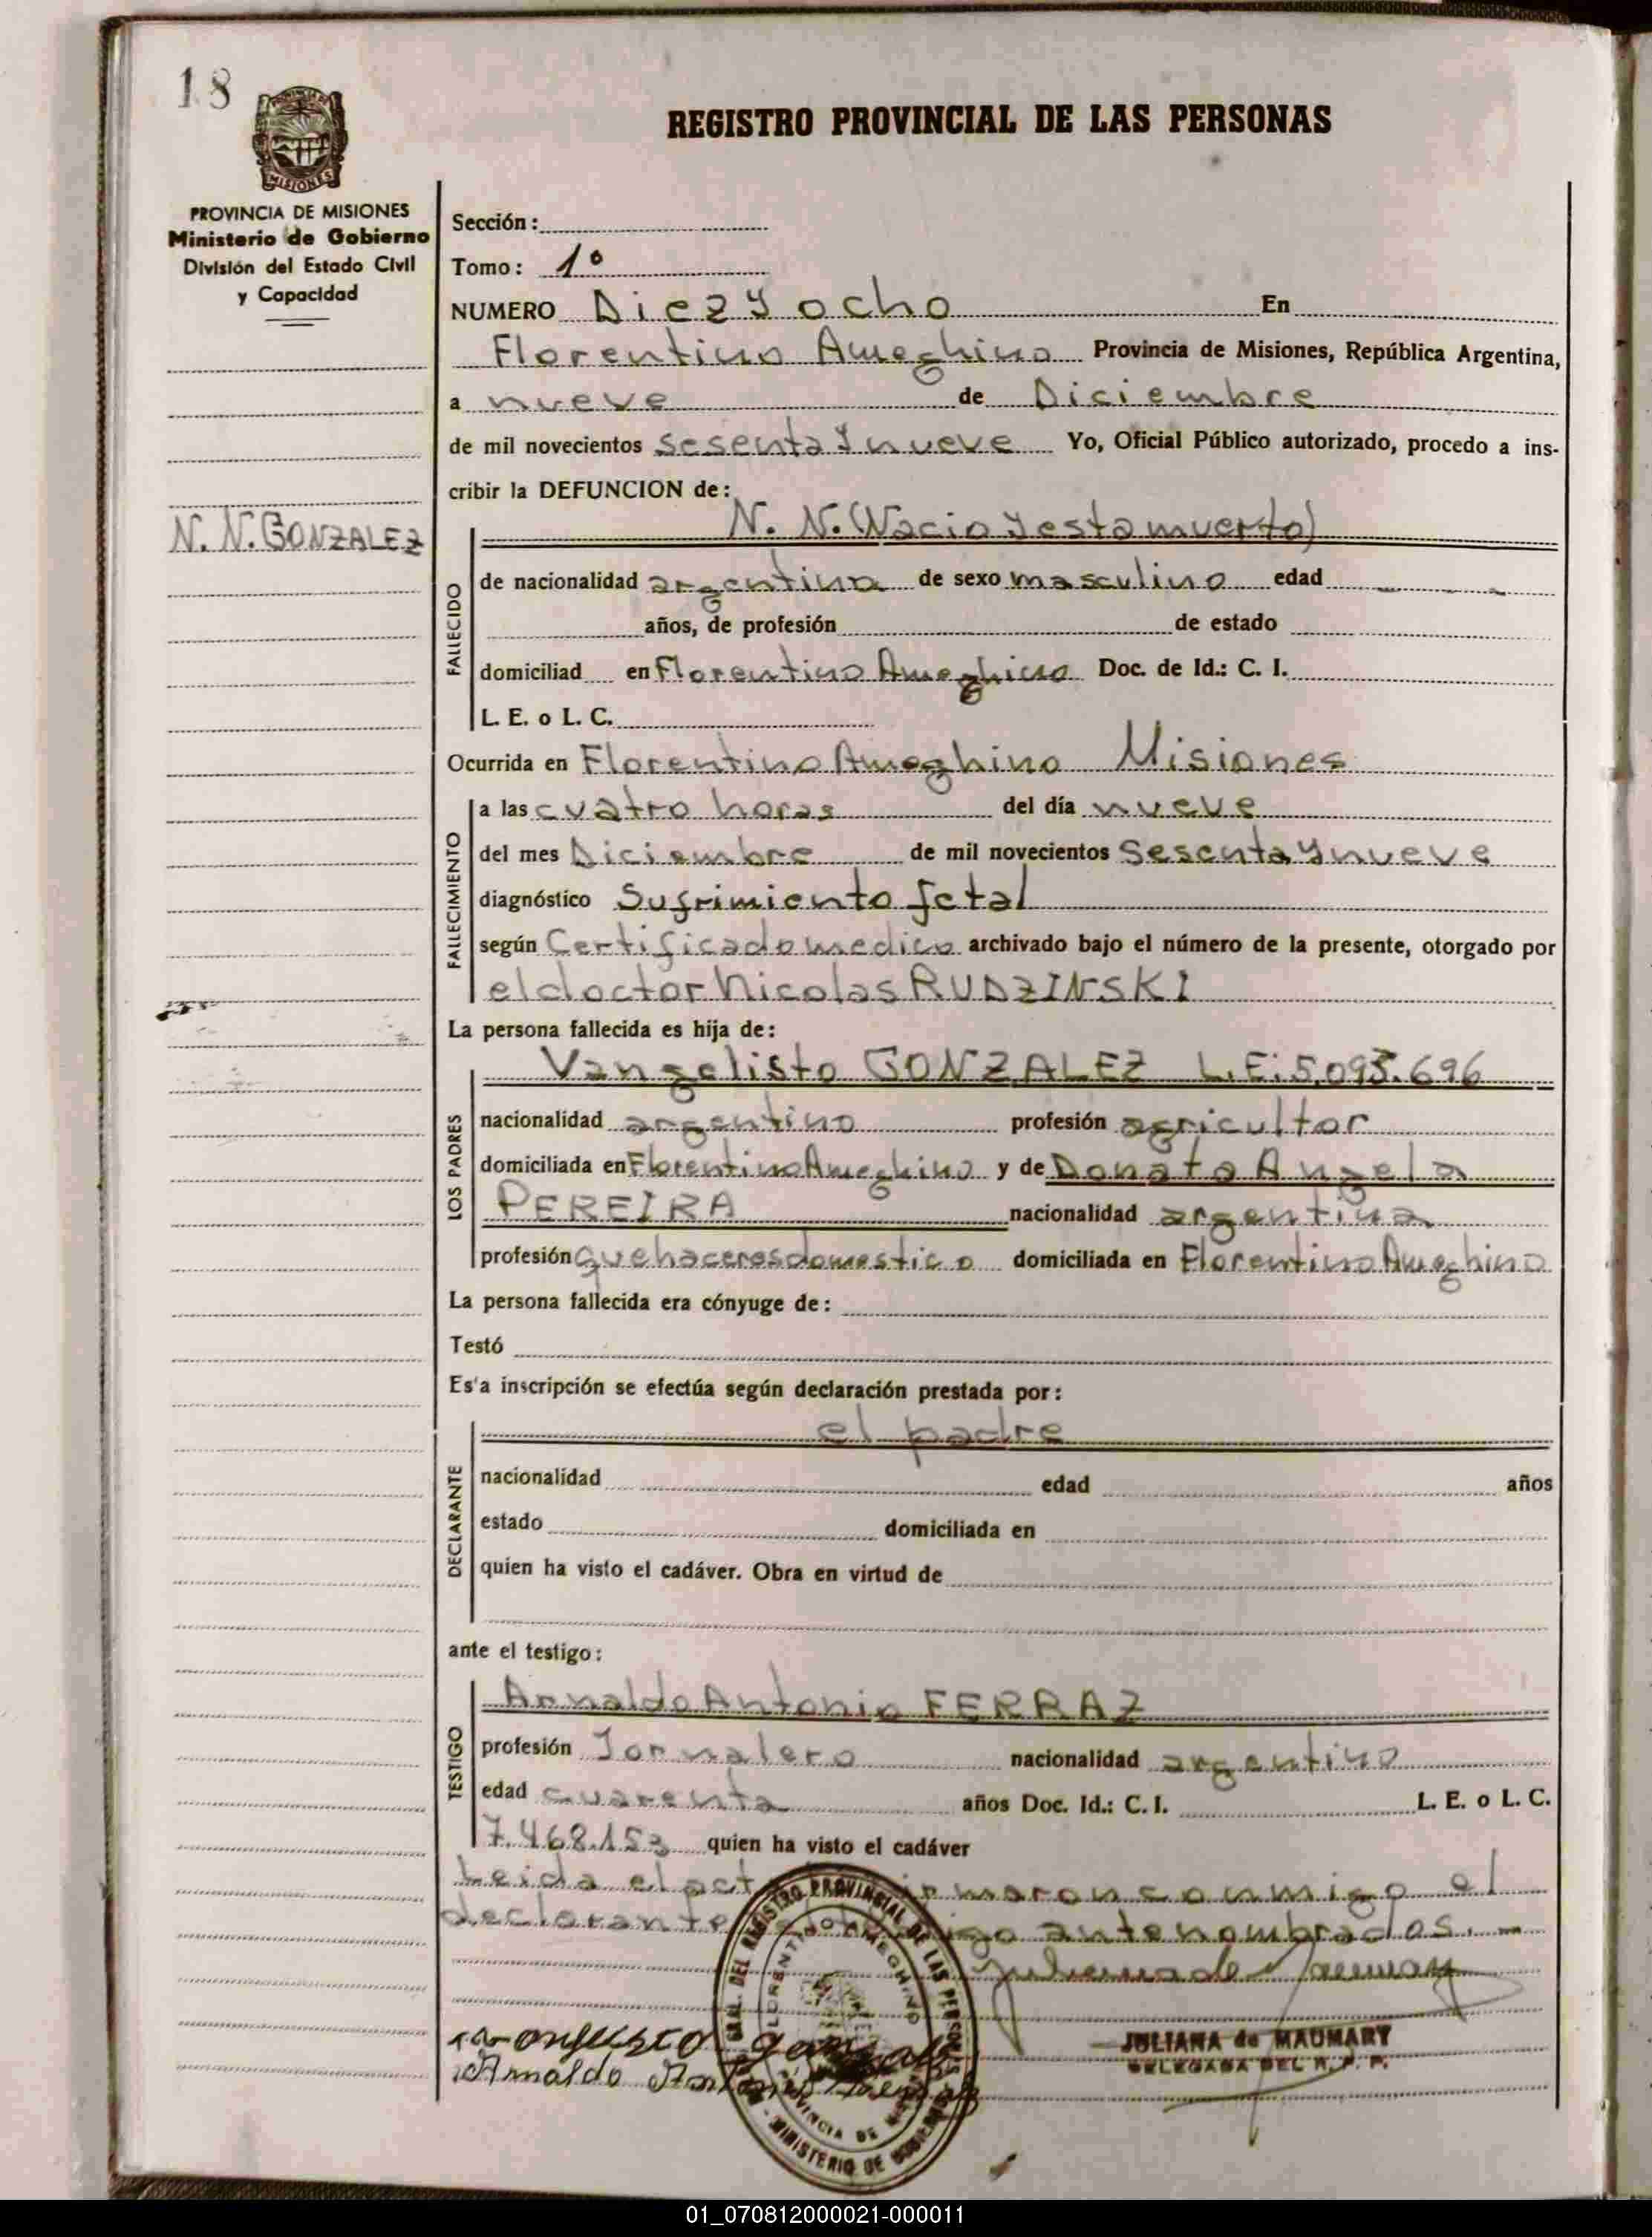 18
PROVINCIA DE MISIONES
Ministerio de Gobierno
División del Estado Civil
y Capacidad
N. N. GONZALEZ
REGISTRO PROVINCIAL DE LAS PERSONAS
Sección:
Tomo: 1º
NUMERO Diez y ocho En
Florentino Ameghino Provincia de Misiones, República Argentina,
a nueve de Diciembre
de mil novecientos sesenta y nueve Yo, Oficial Público autorizado, procedo a ins-
cribir la DEFUNCION de:
FALLECIDO
N. N. (Nacio y esta muerto)
de nacionalidad argentina de sexo masculino edad
años, de profesión de estado
domiciliad en Florentino Ameghino Doc. de Id.: C. I.
L. E. o L. C.
Ocurrida en Florentino Ameghino Misiones
FALLECIMIENTO
a las cuatro horas del día nueve
del mes Diciembre de mil novecientos Sesenta y nueve
diagnóstico Sufrimiento fetal
según Certificado medico archivado bajo el número de la presente, otorgado por
el doctor Nicolas RUDZINSKI
La persona fallecida es hija de:
LOS PADRES
Vangelisto GONZALEZ L.E: 5.093.696
nacionalidad argentino profesión agricultor
domiciliada en Florentino Ameghino y de Donata Angela
PEREIRA nacionalidad argentina
profesión Quehaceres domestico domiciliada en Florentino Ameghino
La persona fallecida era cónyuge de:
Testó
Es'a inscripción se efectúa según declaración prestada por:
DECLARANTE
el padre
nacionalidad edad años
estado domiciliada en
quien ha visto el cadáver. Obra en virtud de
ante el testigo:
TESTIGO
Arnaldo Antonio FERRAZ
profesión Jornalero nacionalidad argentino
edad cuarenta años Doc. Id.: C. I. L. E. o L. C.
7.468.153 quien ha visto el cadáver
Leida el act irmaron conmigo el
declarante igo antenombrados.-
Juliana de Maumary
JULIANA de MAUMARY
DELEGADA DEL R. P. P.
Arnaldo
DEL REGISTRO PROVINCIAL DE LAS PERSONAS
FLORENTINO AMEGHINO
PROVINCIA DE MISIONES
MINISTERIO DE GOBIERNO
01_070812000021-000011